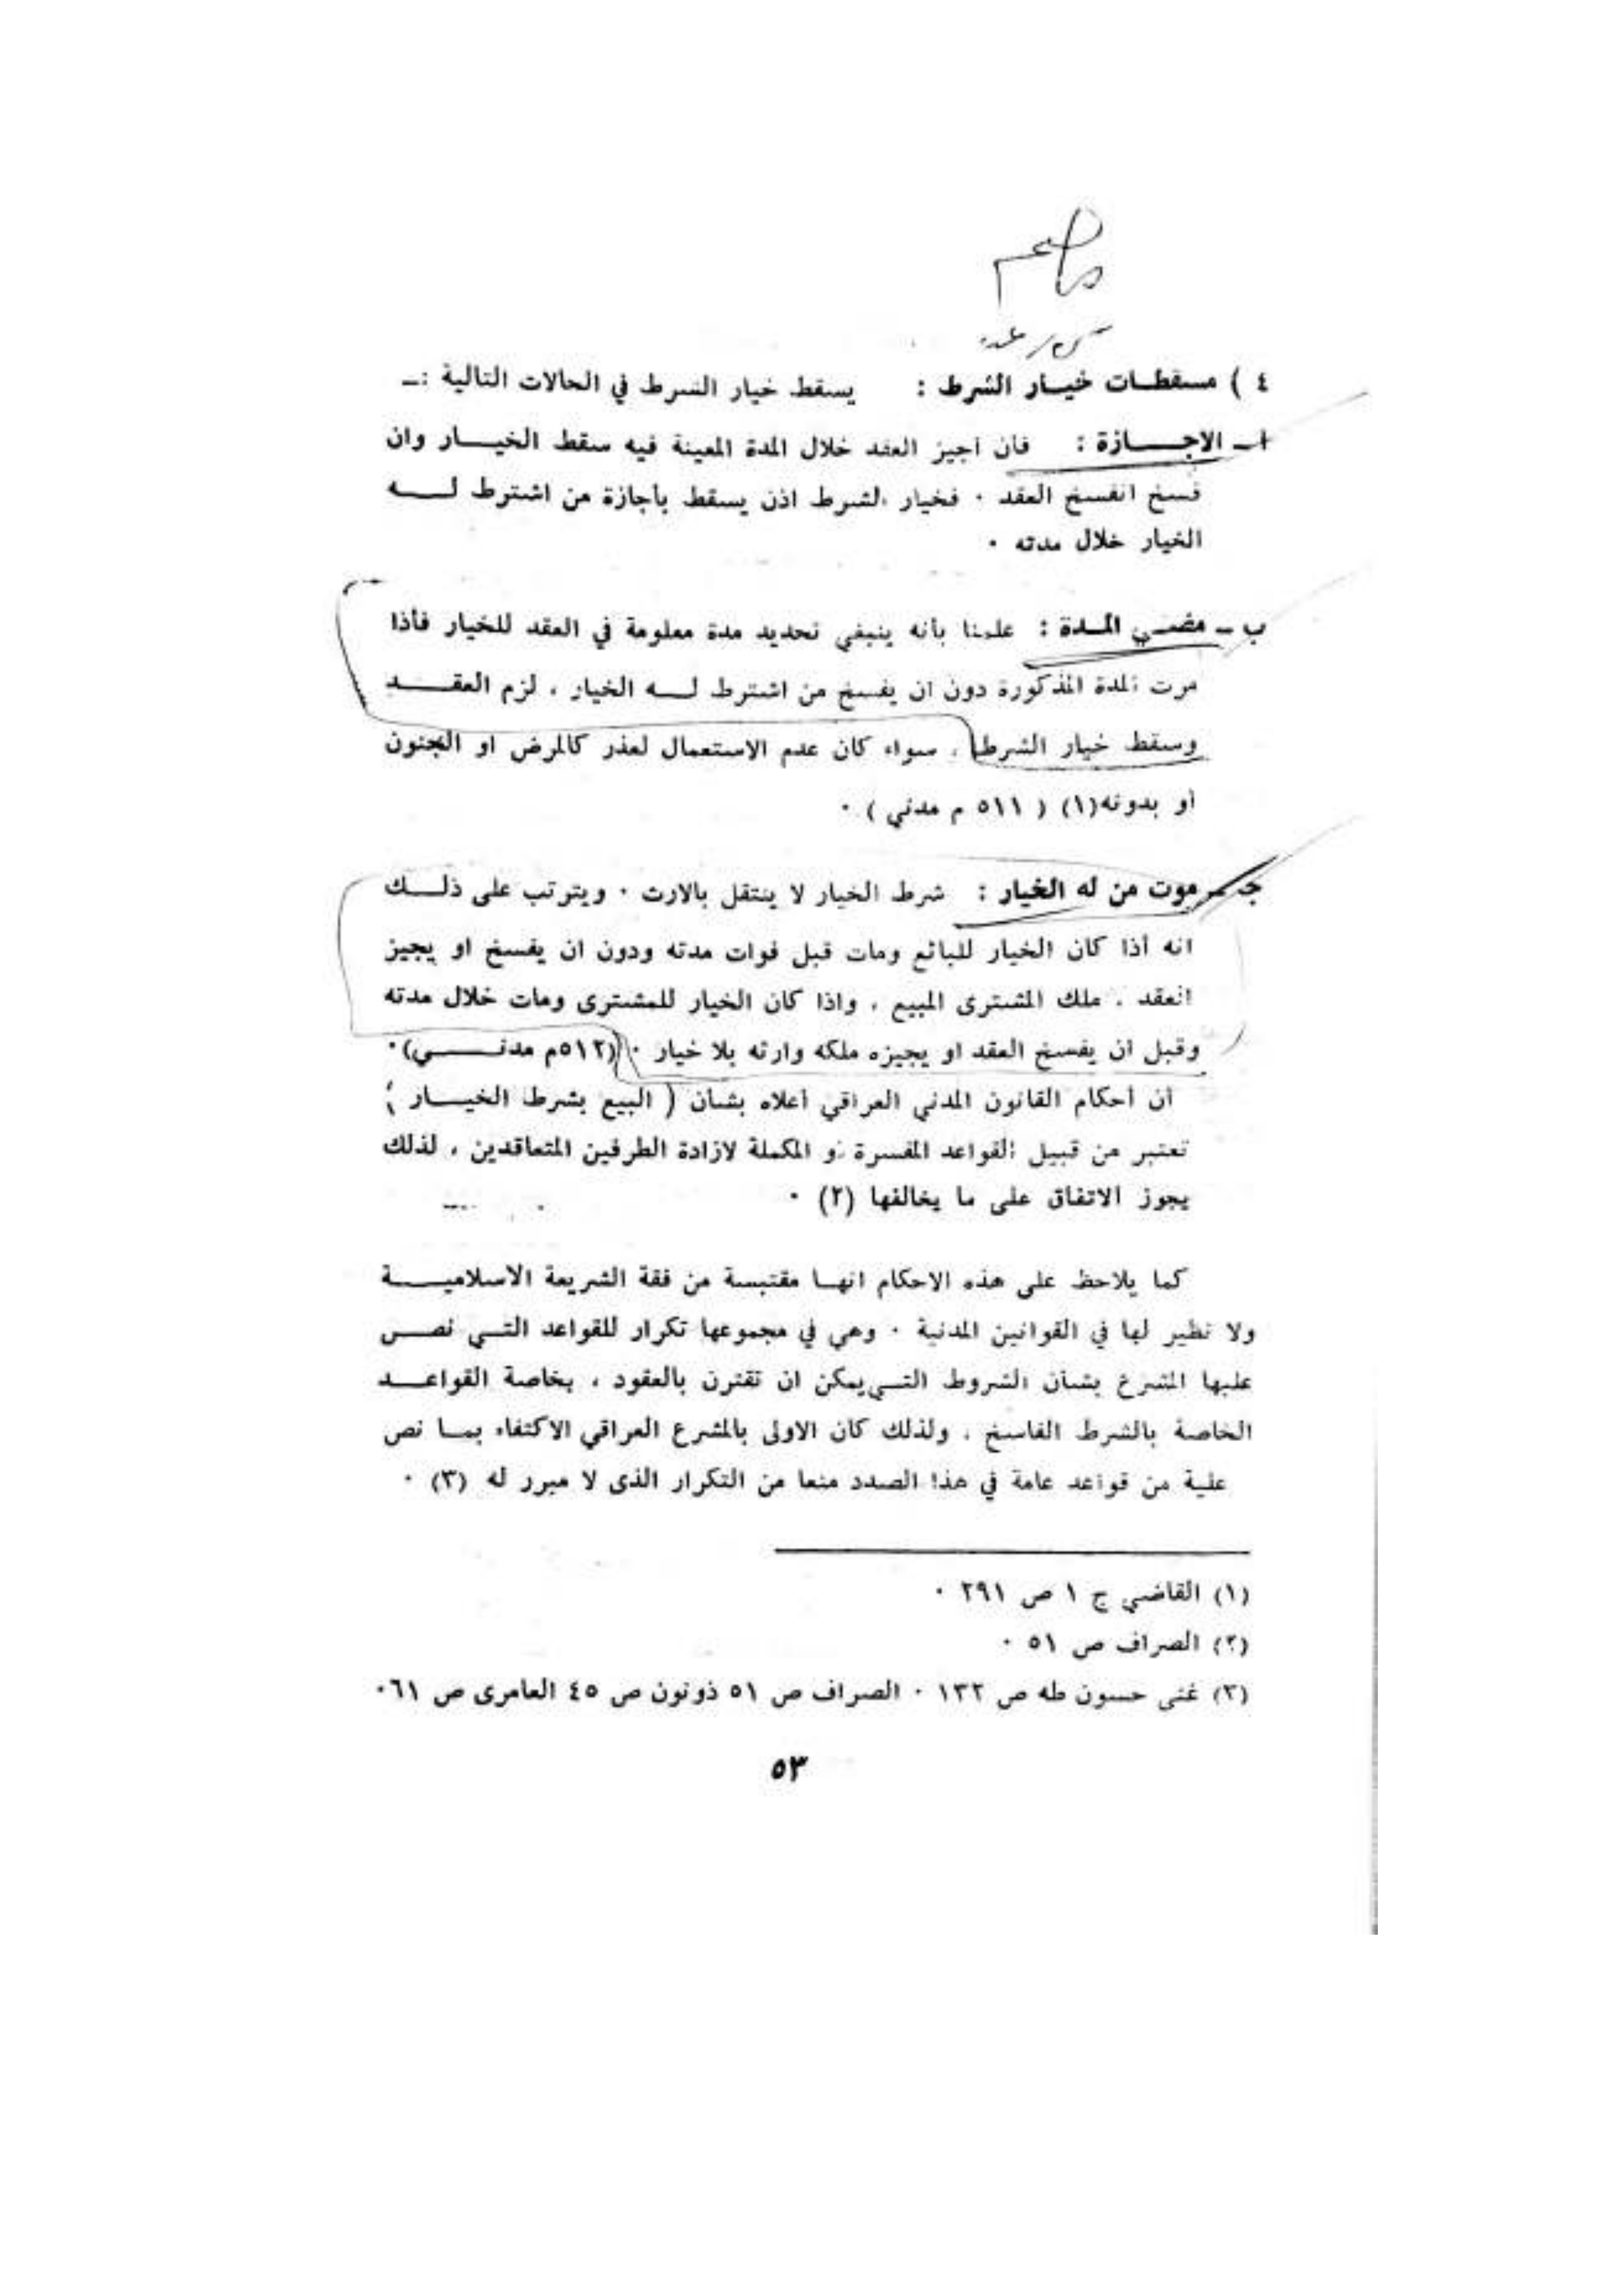 ٤ ) مسقطات خيار الشرط : يسقط خيار الشرط في الحالات التالية :ـ
ا ـ الاجازة : فان اجيز العقد خلال المدة المعينة فيه سقط الخيار وان
فسخ انفسخ العقد ٠ فخيار الشرط اذن يسقط بأجازة من اشترط له
الخيار خلال مدته ٠
ب ـ مضي المدة : علمنا بأنه ينبغي تحديد مدة معلومة في العقد للخيار فأذا
مرت المدة المذكورة دون ان يفسخ من اشترط له الخيار ، لزم العقد
وسقط خيار الشرط ، سواء كان عدم الاستعمال لعذر كالمرض او الجنون
او بدونه(١) ( ٥١١ م مدني ) ٠
جـ ـ موت من له الخيار : شرط الخيار لا ينتقل بالارث ٠ ويترتب على ذلك
انه أذا كان الخيار للبائع ومات قبل فوات مدته ودون ان يفسخ او يجيز
العقد ، ملك المشترى المبيع ، واذا كان الخيار للمشترى ومات خلال مدته
وقبل ان يفسخ العقد او يجيزه ملكه وارثه بلا خيار ٠ (٥١٢م مدني)٠
أن أحكام القانون المدني العراقي أعلاه بشأن ( البيع بشرط الخيار )
تعتبر من قبيل القواعد المفسرة او المكملة لارادة الطرفين المتعاقدين ، لذلك
يجوز الاتفاق على ما يخالفها (٢) ٠
كما يلاحظ على هذه الاحكام انها مقتبسة من فقة الشريعة الاسلامية
ولا نظير لها في القوانين المدنية ٠ وهي في مجموعها تكرار للقواعد التي نص
عليها المشرع بشأن الشروط التي يمكن ان تقترن بالعقود ، بخاصة القواعد
الخاصة بالشرط الفاسخ ، ولذلك كان الاولى بالمشرع العراقي الاكتفاء بما نص
علية من قواعد عامة في هذا الصدد منعا من التكرار الذى لا مبرر له (٣) ٠
(١) القاضي ج ١ ص ٢٩١ ٠
(٢) الصراف ص ٥١ ٠
(٣) غنى حسون طه ص ١٣٢ ٠ الصراف ص ٥١ ذونون ص ٤٥ العامرى ص ٦١٠
٥٣